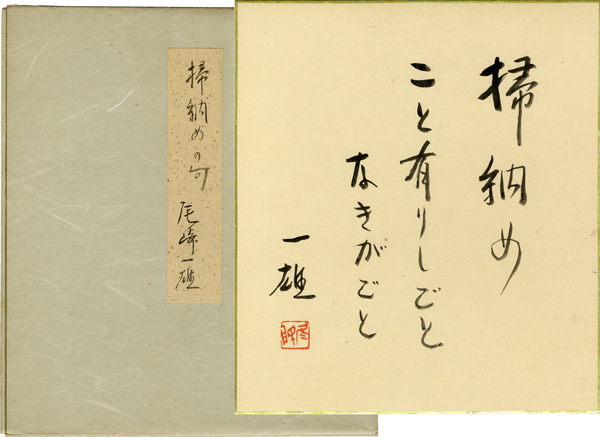 掃納め
こと有りしごと
なきがごと
一雄
掃納めの句
尾崎一雄